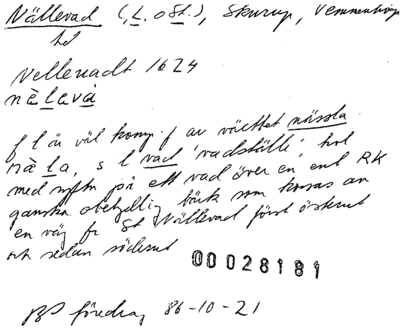 Nällevad (L. o St.), Skurup, Vemmenhög
hd
Nellevadt 1624
nä̀lavà
f l är väl komp. f av växtnet nässla
nä̀la, s l vad 'vadställe', hel
med syftn på ett vad över en enl RK
ganska obetydlig bäck som korsas av
en väg fr St Nällevad först österut
och sedan söderut
00028181
BP föredrag 86-10-21